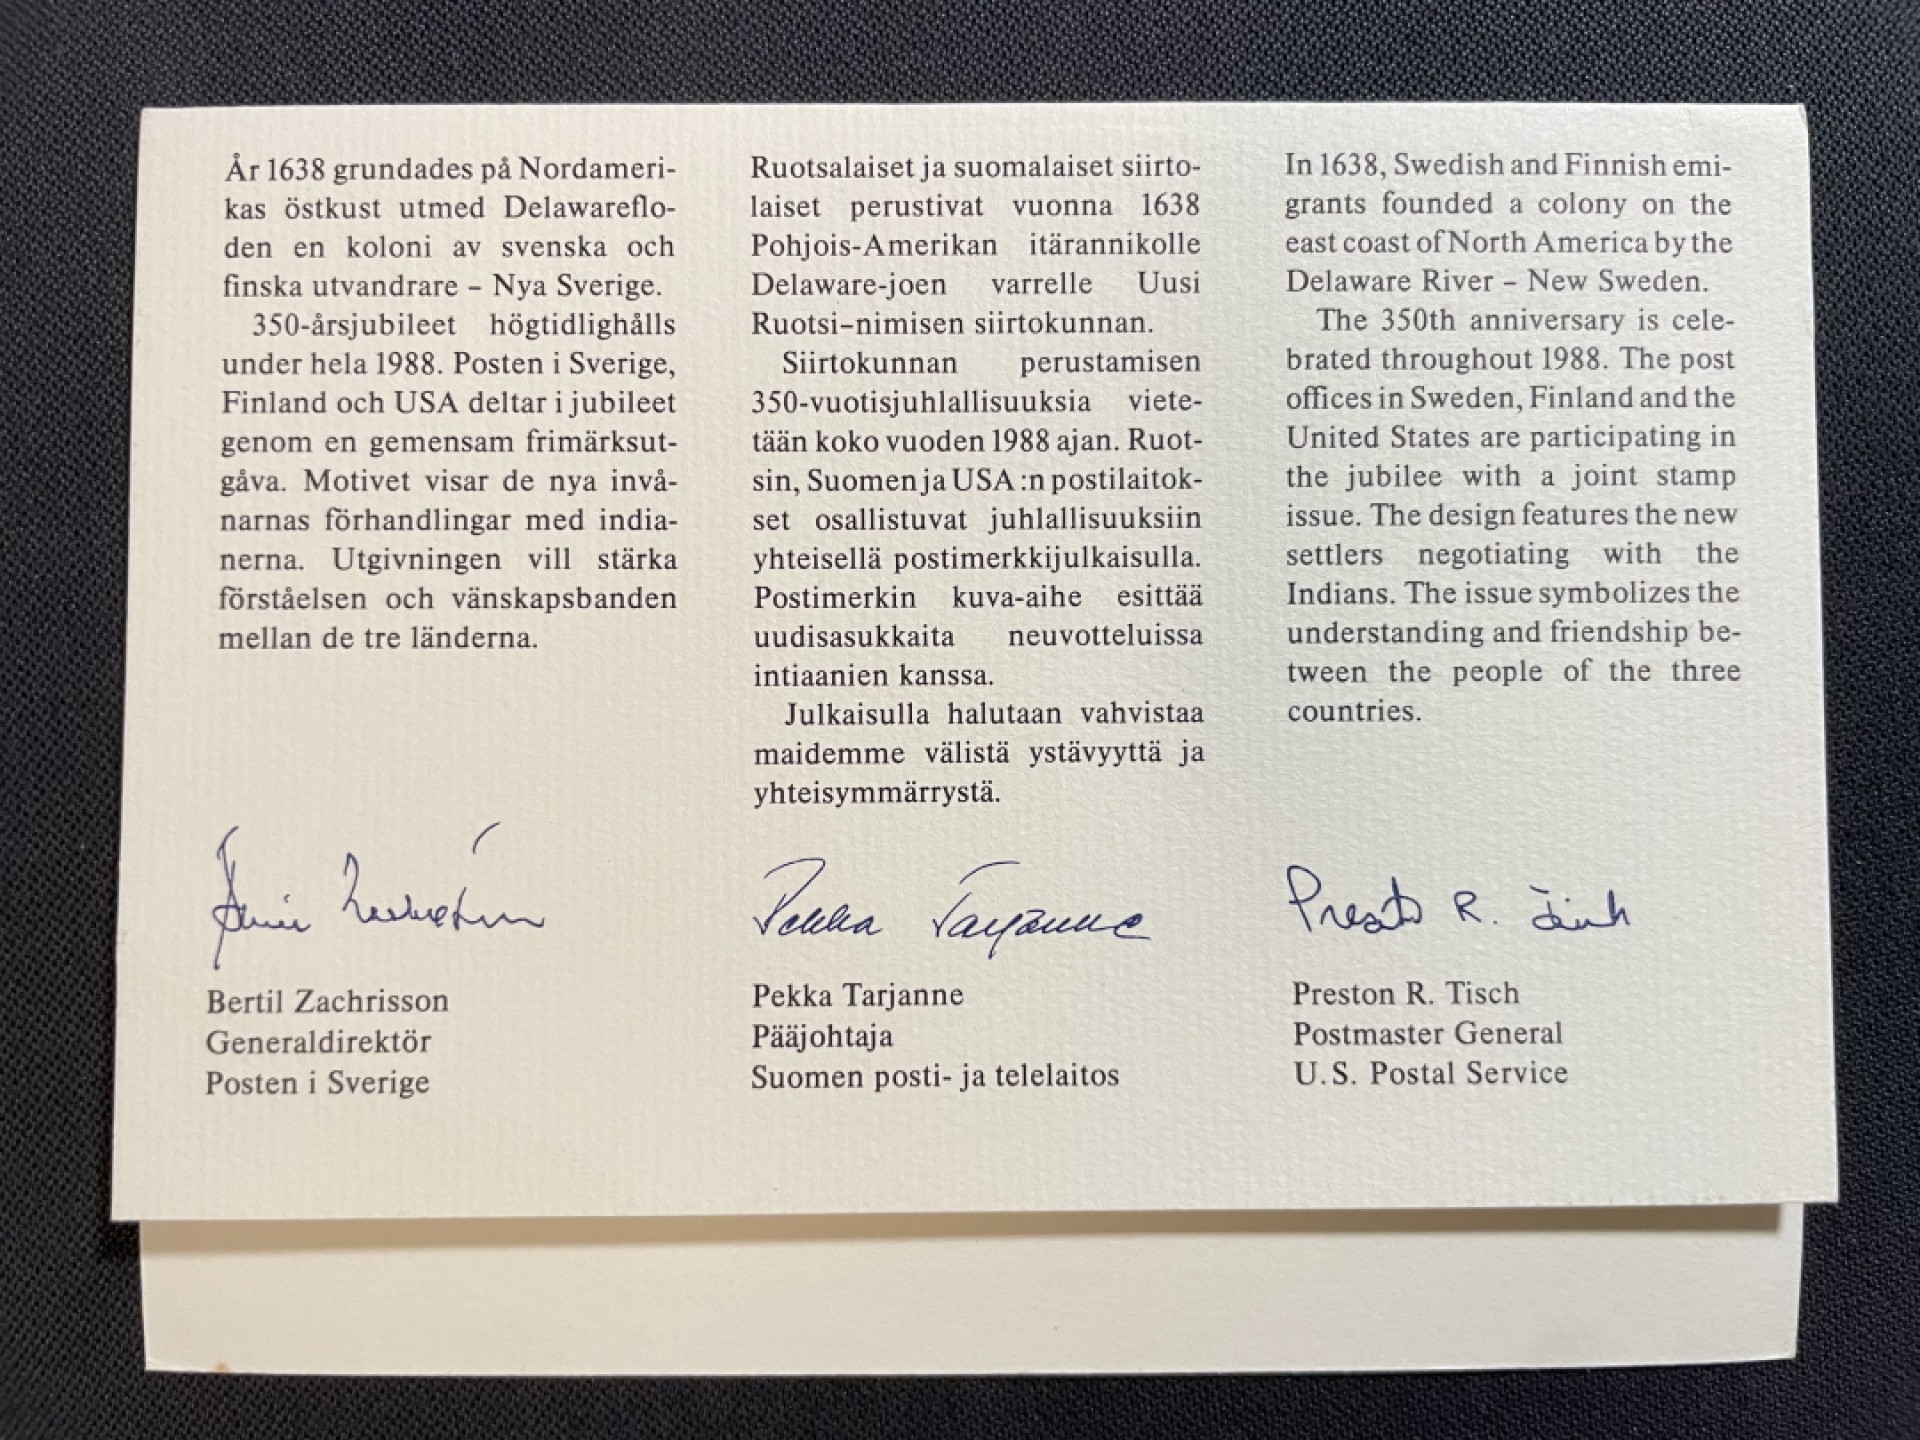 År 1638 grundades på Nordameri-
kas östkust utmed Delawareflo-
den en koloni av svenska och
finska utvandrare – Nya Sverige.
350-årsjubileet högtidlighålls
under hela 1988. Posten i Sverige,
Finland och USA deltar i jubileet
genom en gemensam frimärksut-
gåva. Motivet visar de nya invå-
narnas förhandlingar med india-
nerna. Utgivningen vill stärka
förståelsen och vänskapsbanden
mellan de tre länderna.
Bertil Zachrisson
Bertil Zachrisson
Generaldirektör
Posten i Sverige
Ruotsalaiset ja suomalaiset siirto-
laiset perustivat vuonna 1638
Pohjois-Amerikan itärannikolle
Delaware-joen varrelle Uusi
Ruotsi–nimisen siirtokunnan.
Siirtokunnan perustamisen
350-vuotisjuhlallisuuksia viete-
tään koko vuoden 1988 ajan. Ruot-
sin, Suomen ja USA:n postilaitok-
set osallistuvat juhlallisuuksiin
yhteisellä postimerkkijulkaisulla.
Postimerkin kuva-aihe esittää
uudisasukkaita neuvotteluissa
intiaanien kanssa.
Julkaisulla halutaan vahvistaa
maidemme välistä ystävyyttä ja
yhteisymmärrystä.
Pekka Tarjanne
Pekka Tarjanne
Pääjohtaja
Suomen posti- ja telelaitos
In 1638, Swedish and Finnish emi-
grants founded a colony on the
east coast of North America by the
Delaware River – New Sweden.
The 350th anniversary is cele-
brated throughout 1988. The post
offices in Sweden, Finland and the
United States are participating in
the jubilee with a joint stamp
issue. The design features the new
settlers negotiating with the
Indians. The issue symbolizes the
understanding and friendship be-
tween the people of the three
countries.
Preston R. Tisch
Preston R. Tisch
Postmaster General
U.S. Postal Service